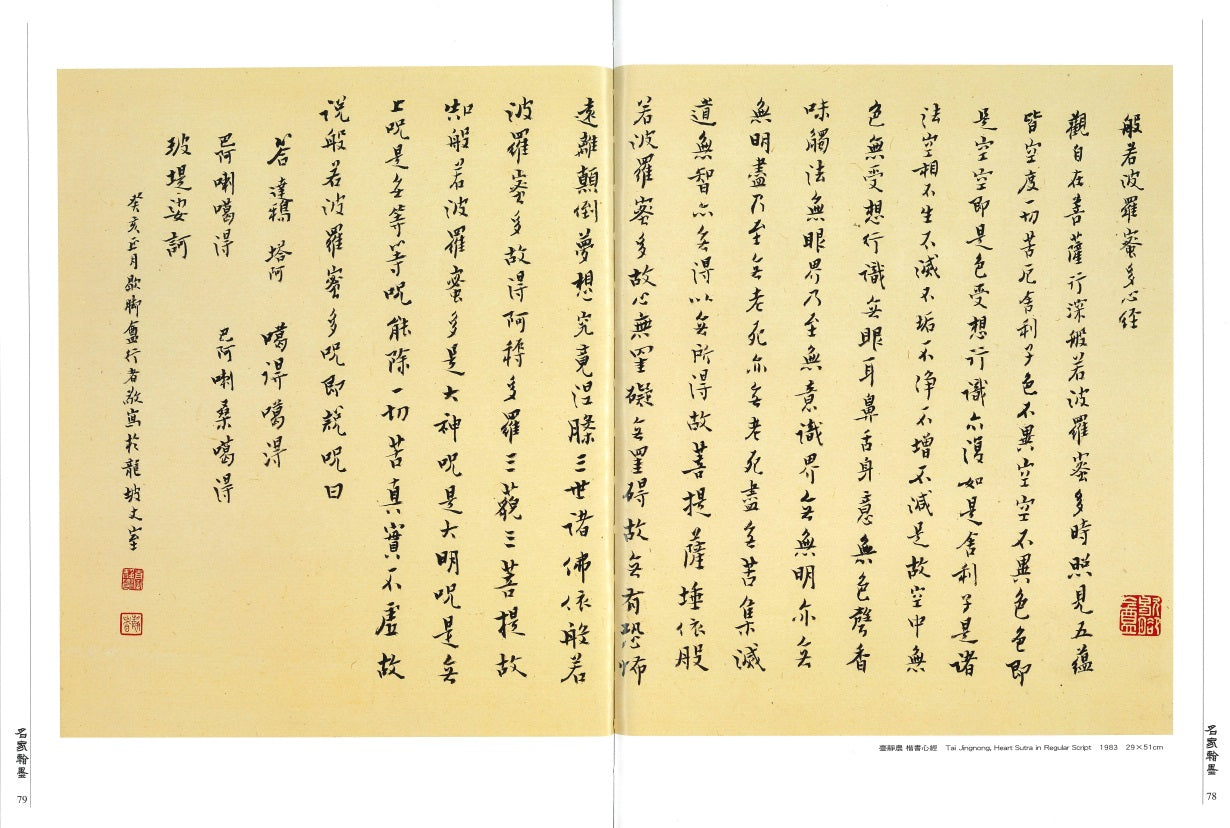 般若波羅蜜多心經
觀自在菩薩行深般若波羅蜜多時照見五蘊
皆空度一切苦厄舍利子色不異空空不異色色即
是空空即是色受想行識亦復如是舍利子是諸
法空相不生不滅不垢不淨不增不減是故空中無
色無受想行識无眼耳鼻舌身意無色聲香
味觸法無眼界乃至無意識界无無明亦无
無明盡乃至无老死亦无老死盡无苦集滅
道無智亦无得以无所得故菩提薩埵依般
若波羅蜜多故心無罣礙无罣碍故无有恐怖
遠離顛倒夢想究竟涅槃三世諸佛依般若
波羅蜜多故得阿耨多羅三藐三菩提故
知般若波羅蜜多是大神咒是大明咒是无
上咒是无等等咒能除一切苦真實不虛故
説般若波羅蜜多咒即説咒曰
答達鴉 塔阿 噶得噶得
巴阿喇噶得 巴阿喇桑噶得
玻堤娑訶
癸亥正月歇脚盦行者敬寫於龍坡丈室
歇脚盦
臺靜農 楷書心經 Tai Jingnong, Heart Sutra in Regular Script 1983 29×51cm
名家翰墨
78
名家翰墨
79